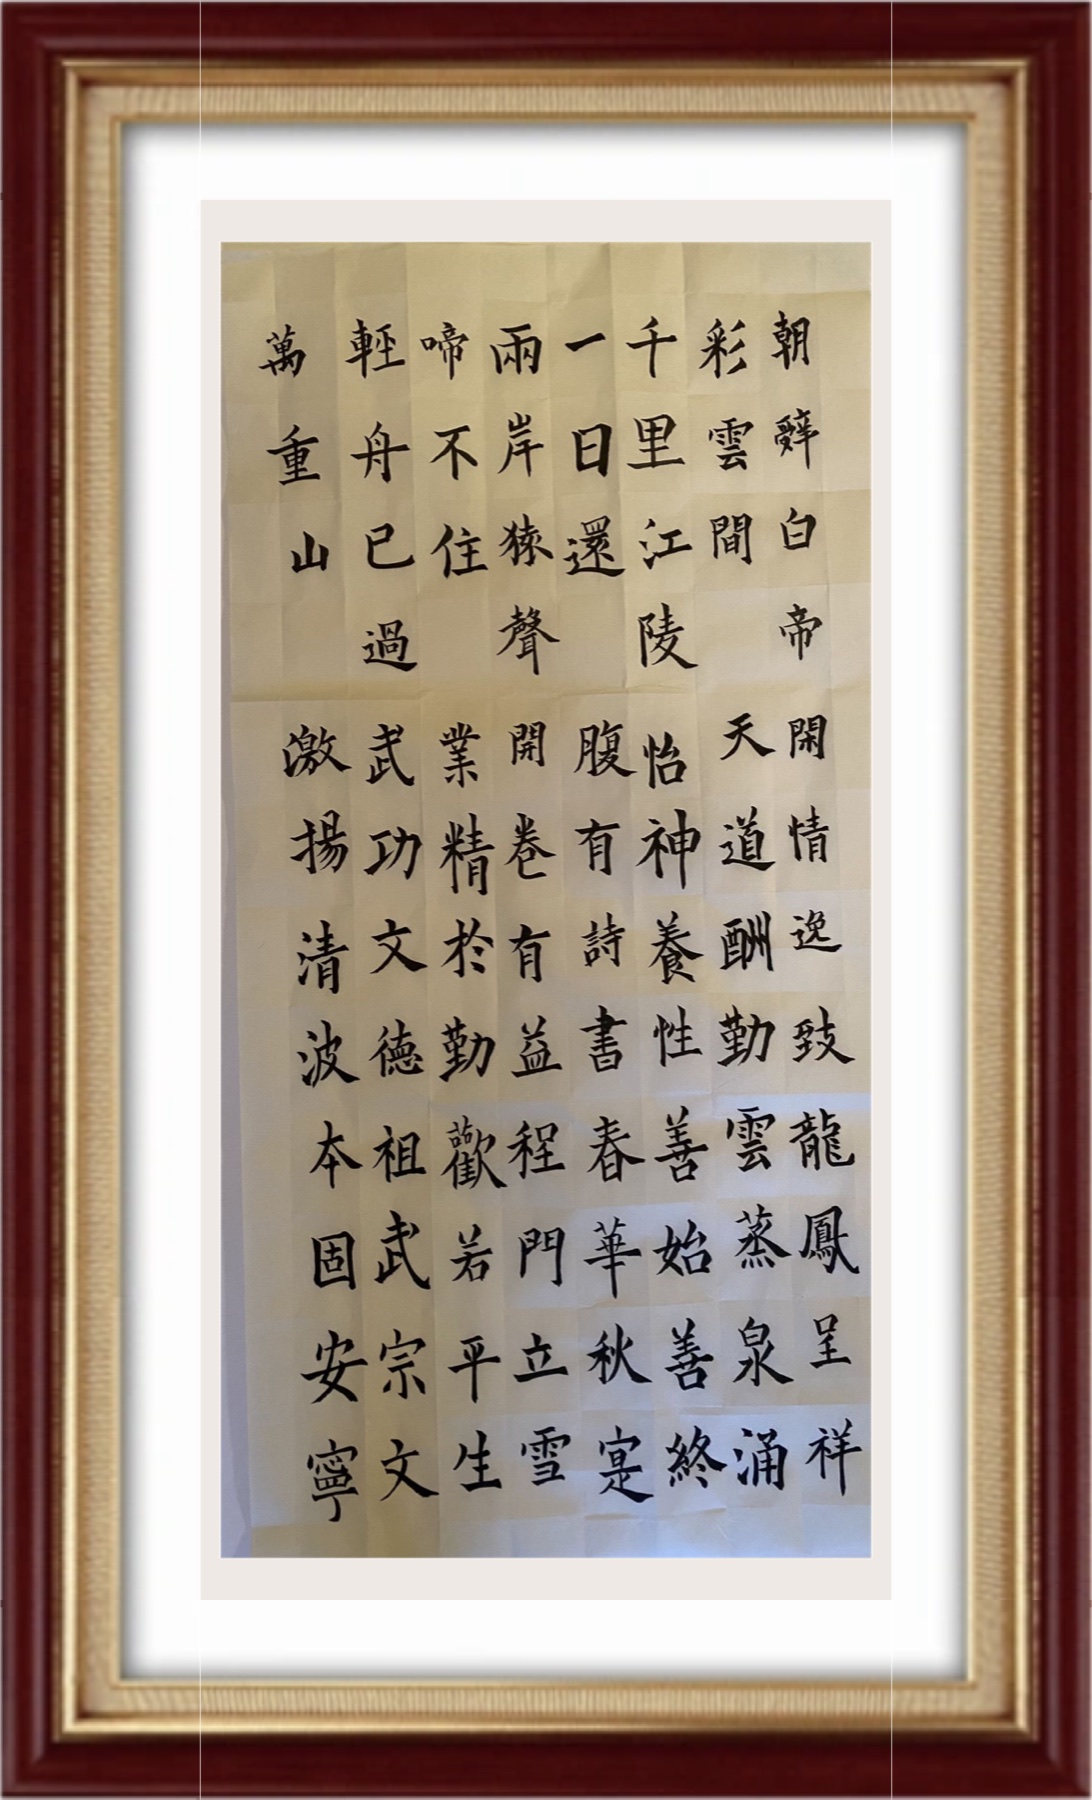 朝辭白帝
彩雲間
千里江陵
一日還
兩岸猿聲
啼不住
輕舟已過
萬重山
閑情逸致龍鳳呈祥
天道酬勤雲蒸泉涌
怡神養性善始善終
腹有詩書春華秋寔
開卷有益程門立雪
業精於勤歡若平生
武功文德祖武宗文
激揚清波本固安寧